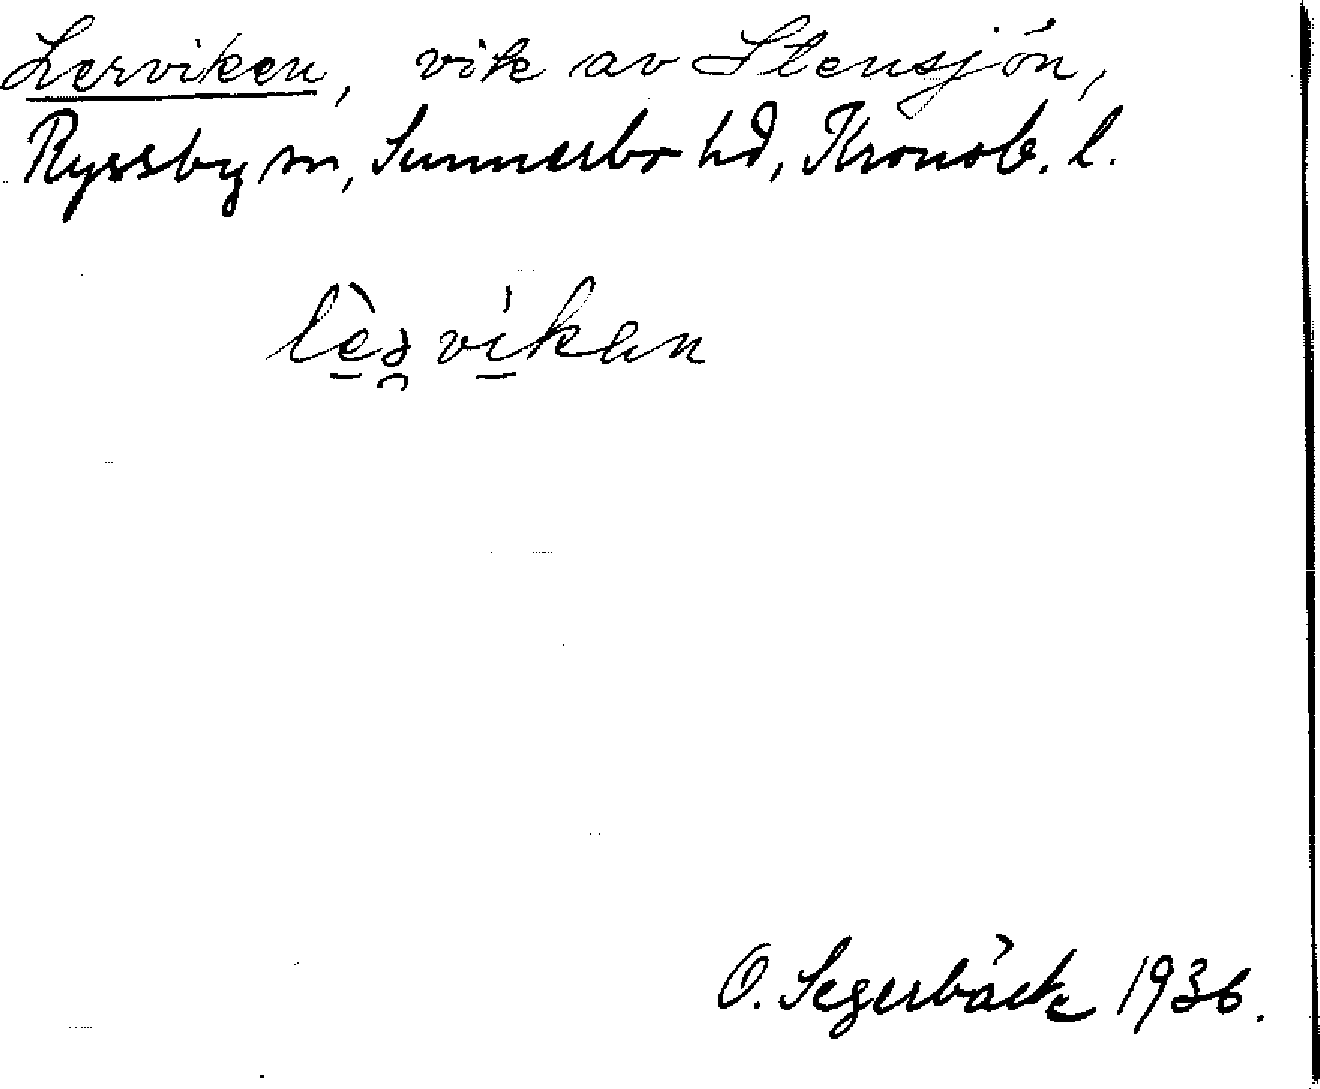 Lerviken, vik av Stensjön,
Ryssby sn, Sunnerbo hd, Kronob. l.
O. Segerbäck 1936.